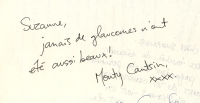 Suzanne,
jamais de glaucomes n'ont
été aussi beaux!
Monty Cantsin.
xxxx.